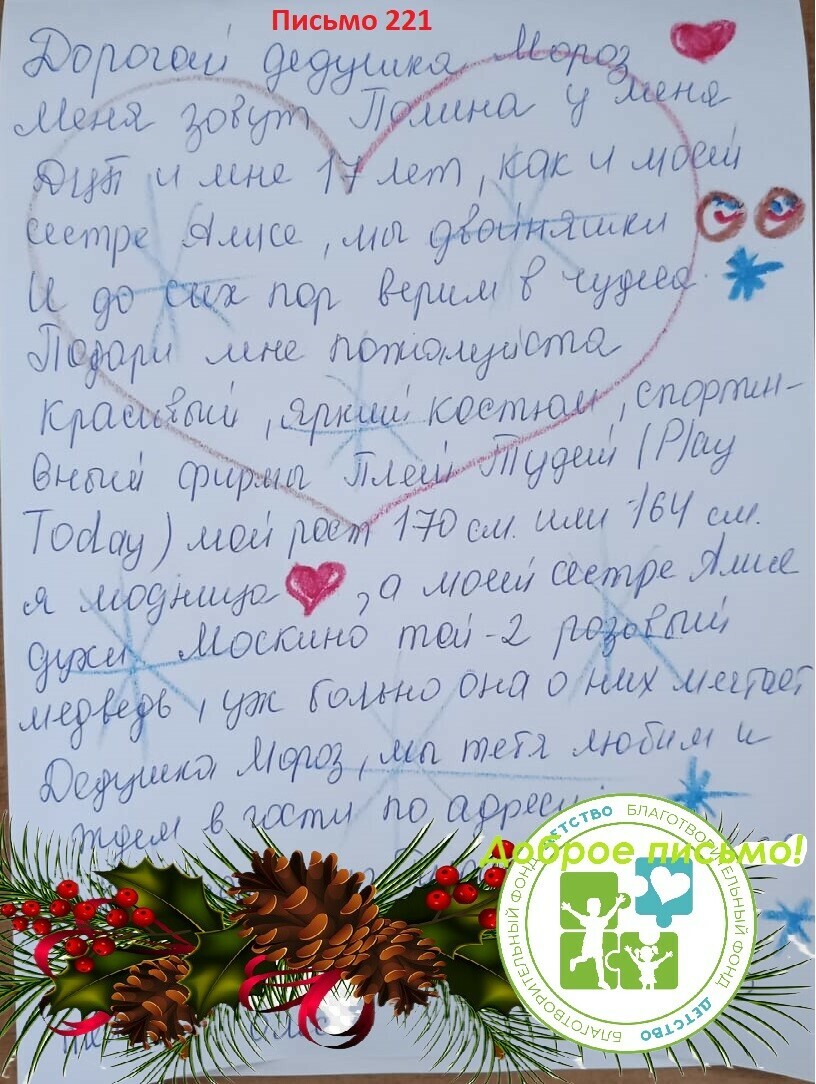 Письмо 221
Дорогой дедушка Мороз
Меня зовут Полина у меня
ДЦП и мне 17 лет, как и моей
сестре Алисе, мы двойняшки
И до сих пор верим в чудеса.
Подари мне пожалуйста
красивый, яркий костюм, спортин-
вный фирмы Плей Тудей (Play
Today) мой рост 170 см. или 164 см.
я модница, а моей сестре Алисе
духи Москино той-2 розовый
медведь, уж больно она о них мечтает
Дедушка Мороз, мы тетя любим и
ждем в гости по адресу:
Доброе письмо!
БЛАГОТВОРИТЕЛЬНЫЙ ФОНД ДЕТСТВО
БЛАГОТВОРИТЕЛЬНЫЙ ФОНД ДЕТСТВО